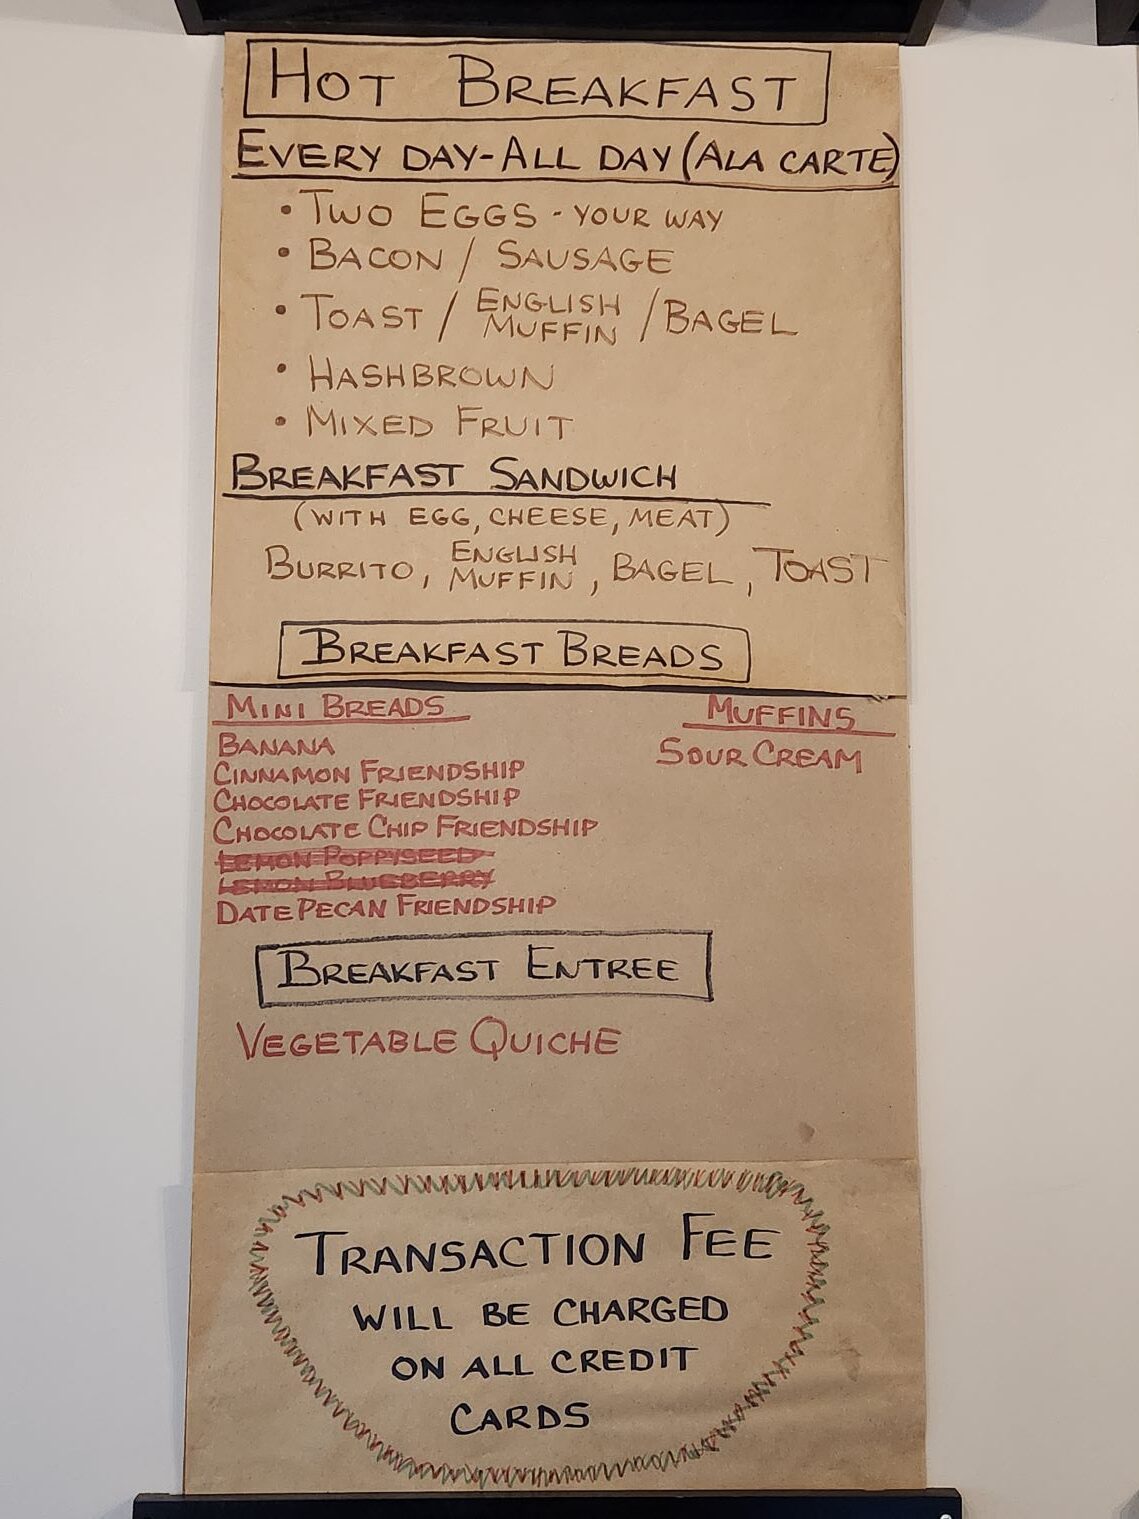 HOT BREAKFAST
EVERY DAY-ALL DAY (ALA CARTE)
• TWO EGGS - YOUR WAY
• BACON / SAUSAGE
• TOAST / ENGLISH MUFFIN / BAGEL
• HASHBROWN
• MIXED FRUIT
BREAKFAST SANDWICH
(WITH EGG, CHEESE, MEAT)
BURRITO, ENGLISH MUFFIN, BAGEL, TOAST
BREAKFAST BREADS
MINI BREADS
BANANA
CINNAMON FRIENDSHIP
CHOCOLATE FRIENDSHIP
CHOCOLATE CHIP FRIENDSHIP
LEMON POPPYSEED
LEMON BLUEBERRY
DATE PECAN FRIENDSHIP
MUFFINS
SOUR CREAM
BREAKFAST ENTREE
VEGETABLE QUICHE
TRANSACTION FEE
WILL BE CHARGED
ON ALL CREDIT
CARDS